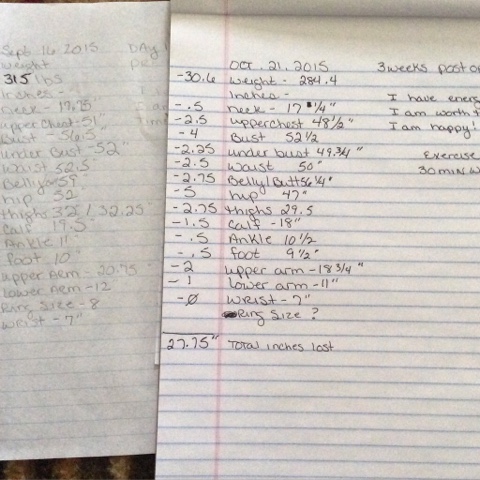 Sept 16 2015 DAY
weight
315 lbs
Inches -
Neck - 17.75
upper Chest - 51"
Bust - 56.5
under Bust - 52"
Waist 52.5
Belly 59
hip 52
thighs 32 / 32.25
Calf 19.5
Ankle 11"
Foot 10"
upper Arm - 20.75
Lower Arm - 12
Ring Size - 8
Wrist - 7"
Oct. 21. 2015 3 weeks post o
-30.6 weight - 284.4
Inches - I have ener
-.5 neck - 17 1/4" I am worth
-2.5 upper chest 48 1/2" I am happy!
-4 Bust 52 1/2
-2.25 under bust 49.3/4" Exercise
-2.5 Waist 50" 30 min w
-2.75 Belly/Butt 56 1/4"
-5 hip 47"
-2.75 thighs 29.5
-1.5 Calf - 18"
-.5 Ankle 10 1/2
-.5 foot 9 1/2"
-2 upper arm - 18 3/4"
-1 lower arm - 11"
-0 Wrist - 7"
Ring Size ?
27.75" Total inches lost